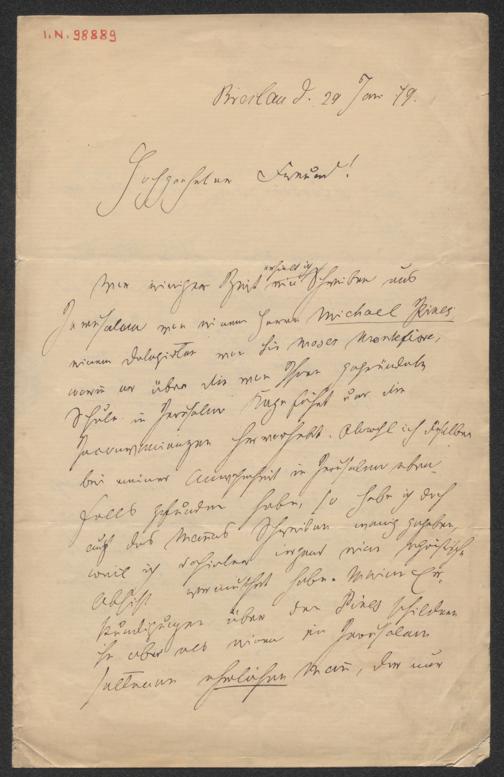 I.N. 98889
Breslau d. 29 Jan 79.
Hochgeehrter Freund!
Vor einiger Zeit erhielt ich ein Schreiben aus
Jerusalem von einem Herrn Michael Pines,
einem Delegirten von Sir Moses Montefiore,
worin er über die von Ihnen gegründete
Schule in Jerusalem Klage führt und die
hervorhebt. Obwohl ich dieselben
bei meiner Anwesenheit in Jerusalem eben-
falls gefunden habe, so habe ich doch
auf das Schreiben wenig gegeben,
weil ich dahinter irgend eine
Absicht vermuthet habe. Meine Er-
kundigungen über den Pines schildern
ihn aber als einen in Jerusalem
seltenen ehrlichen Mann, der nur